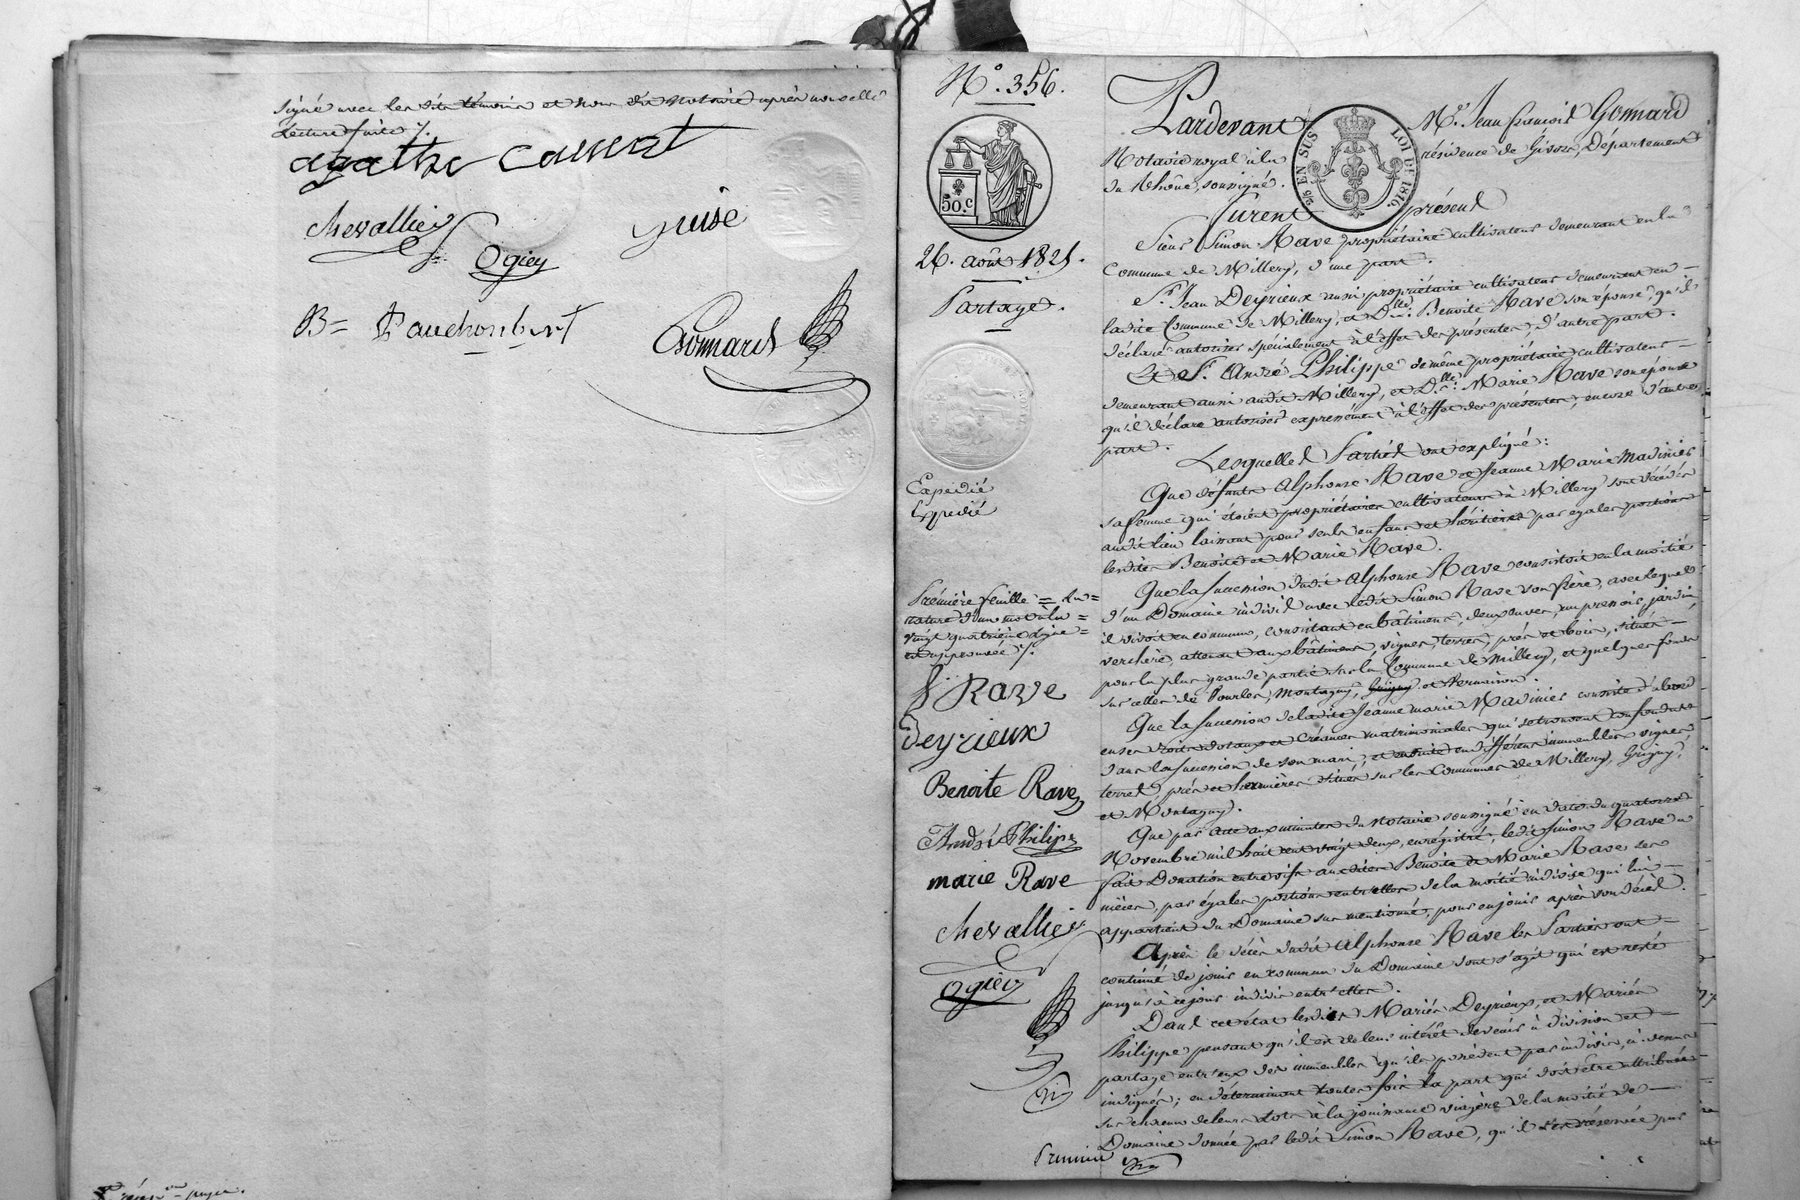 signé avec les dits témoins et nous dit notaire après nouvelle
lecture faite /.
agathe
chevallier
Ogier
B= Pauchon
Gonnard
N.º 356.
50.c
26. août 1825.
Partage.
Expédié
Expédié
Première feuille = Ra=
rature d'un mot à la =
vingt quatrième ligne =
est approuvée /.
S. RAVE
Deyrieux
Benoite Rave
André Philippe
marie Rave
chevallier
Ogier
Première
Pardevant Mᵉ. Jean françois Gonnard
Notaire royal à la résidence de Givors, Département
du Rhône, soussigné.
EN SUS
LOI DE 1816.
furent présent
Sieur Simon Rave propriétaire cultivateur demeurant en la
Commune de Millery, d'une part.
Sʳ. Jean Deyrieux aussi propriétaire cultivateur demeurant en —
ladite Commune de Millery, et Dˡˡᵉ. Benoite Rave son épouse, qu'il
déclare autoriser spécialement à l'effet des présentes, d'autre part.
Et Sʳ. André Philippe de même propriétaire cultivateur —
demeurant aussi audit Millery, et Dˡˡᵉ. Marie Rave son épouse
qu'il déclare autoriser expressément à l'effet des présentes, encore d'autre
part.
Lesquelles Parties ont expliqué :
Que défunts Alphonse Rave et Jeanne Marie Madinier
sa femme qui étoient propriétaires cultivateurs à Millery sont décédés
audit lieu laissant pour seuls enfans et héritières par égales portions
lesdites Benoite et Marie Rave.
Que la succession dudit Alphonse Rave consistoit en la moitié
d'un Domaine indivis avec ledit Simon Rave son frère, avec lequel
il vivoit en commun, consistant en bâtimens, deux cuves, un pressoir, jardin,
verchère, attenant aux bâtimens, vignes, terres, prés et bois, situés —
pour la plus grande partie sur la Commune de Millery, et quelques fonds
sur celles de Vourles, Montagny, Grigny et Vernaison.
Que la succession de ladite Jeanne marie Madinier consiste d'abord
en ses droits dotaux et créances matrimoniales qui se trouvent confondus
dans la succession de son mari, et ensuite en différens immeubles vignes,
terres, prés et situés sur les Communes de Millery, Grigny,
et Montagny.
Que par acte aux minutes du Notaire soussigné en date du quatorze
Novembre mil huit cent vingt deux, enregistré, ledit Simon Rave a
fait Donation entre vifs auxdites Benoite et Marie Rave ses
nièces, par égales portions entr'elles de la moitié indivise qui lui —
appartient du Domaine sus mentionné, pour en jouir après son décès.
Après le décès dudit Alphonse Rave les Parties ont —
continué de jouir en commun du Domaine dont s'agit qui est resté
jusqu'à ce jour indivis entr'elles.
Dans cet état lesdits Mariés Deyrieux, et Mariés
Philippe pensant qu'il est de leur intérêt de venir à division et —
partage entr'eux des immeubles qu'ils possèdent par indivis, à
indiqués ; en déterminant toutes fois la part qui doit être attribuée
sur chacun de leurs lots à la jouissance viagère de la moitié de —
Domaine donnée par ledit Simon Rave, qu'il s'est réservée par